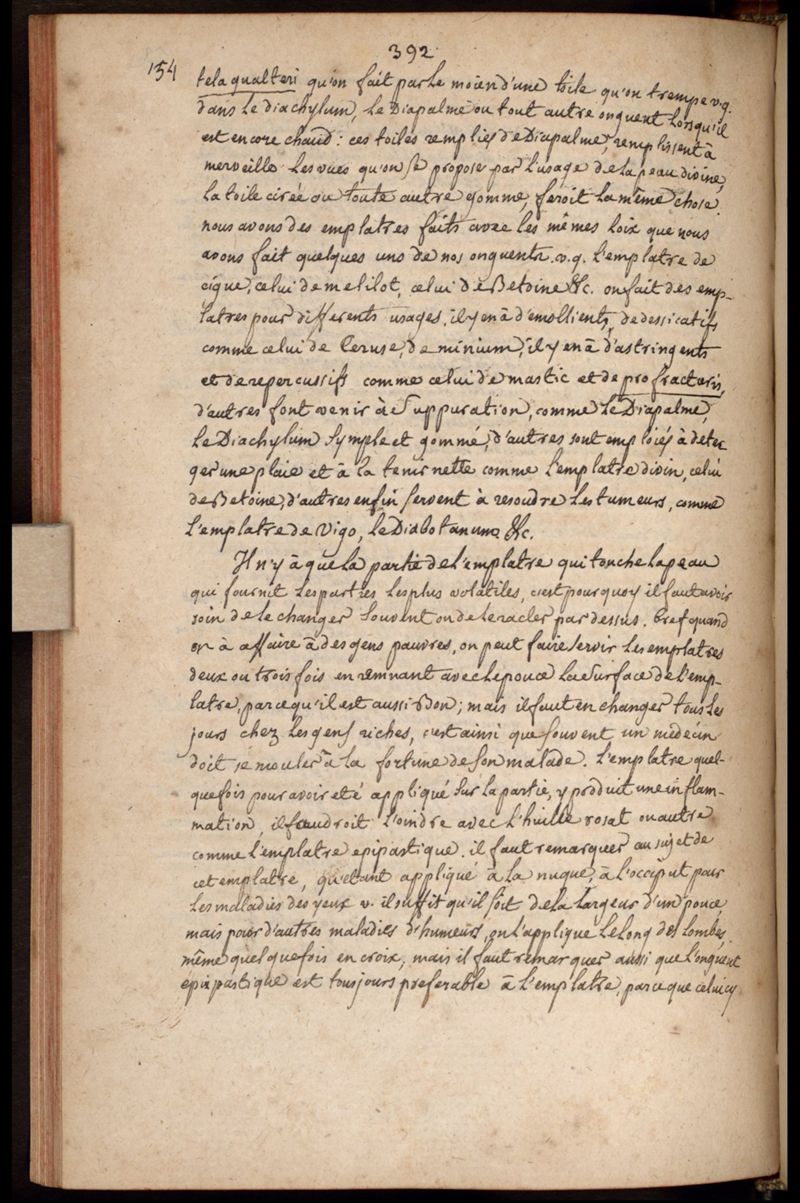 392
154
tela qualteri qu'on fait par le moien d'une toile qu'on trempe v.g.
dans le diachylum, le Diapalme ou tout autre onguent lorsqu'il
est encore chaud : ces toiles remplies de Diapalme, remplissent à
merveille les vues qu'on se propose par l'usage de la peau divine,
la toile cirée ou toute autre gomme, feroit la même chose.
nous avons des emplatres faits avec les mêmes loix que nous
avons fait quelques uns de nos onguents. v.g. l'emplatre de
cigue, celui de melilot, celui de Betoine &c. on fait des emp-
latres pour differents usages, il y en à d'emollients, de dessicatifs
comme celui de Ceruse, de minium, il y en à d'astringents
et de repercussifs comme celui de mastic et de pro fracturis,
d'autres font venir à suppuration, comme le Diapalme,
le Diachylum symple et gommé, d'autres sont emploiés à deter
ger une plaie et à la tenir nette comme l'emplatre divin, celui
de Betoine, d'autres enfin servent à resoudre les tumeurs, comme
l'emplatre de Vigo, le Diabotanum &c.
Il n'y à que la partie de l'emplatre qui touche la peau
qui fournit les parties les plus volatiles, c'est pourquoy il faut avoir
soin de le changer souvent ou de le racler par dessus. Bref quand
on à affaire à des gens pauvres, on peut faire servir les emplatres
deux ou trois fois en remnant avec le pouce la surface de l'emp-
latre, parcequ'il est aussi bon ; mais il faut en changer tous les
jours chez les gens riches, c'est ainsi que souvent un medecin
doit se mouler à la fortune de son malade. L'emplatre quel-
quefois pour avoir eté appliqué sur la partie, y produit une inflam-
mation, il faudroit l'oindre avec l'huille rosat ou autre
comme l'emplatre epipastique. il faut remarquer au sujet de
cet emplatre, qu'etant appliqué à la nuque, à l'occiput pour
les maladies des yeux v. il suffit qu'il soit de la largeur d'un pouce,
mais pour d'autres maladies d'humeurs, on l'applique le long des lombes,
même quelquefois en croix, mais il faut remarquer aussi que l'onguent
epipastique est tousjours preferable à l'emplatre, parceque celuicy